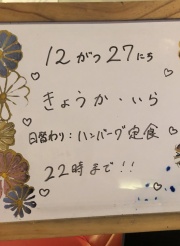 12がつ27にち
きょうか・いら
日替わり:ハンバーグ定食
22時まで!!